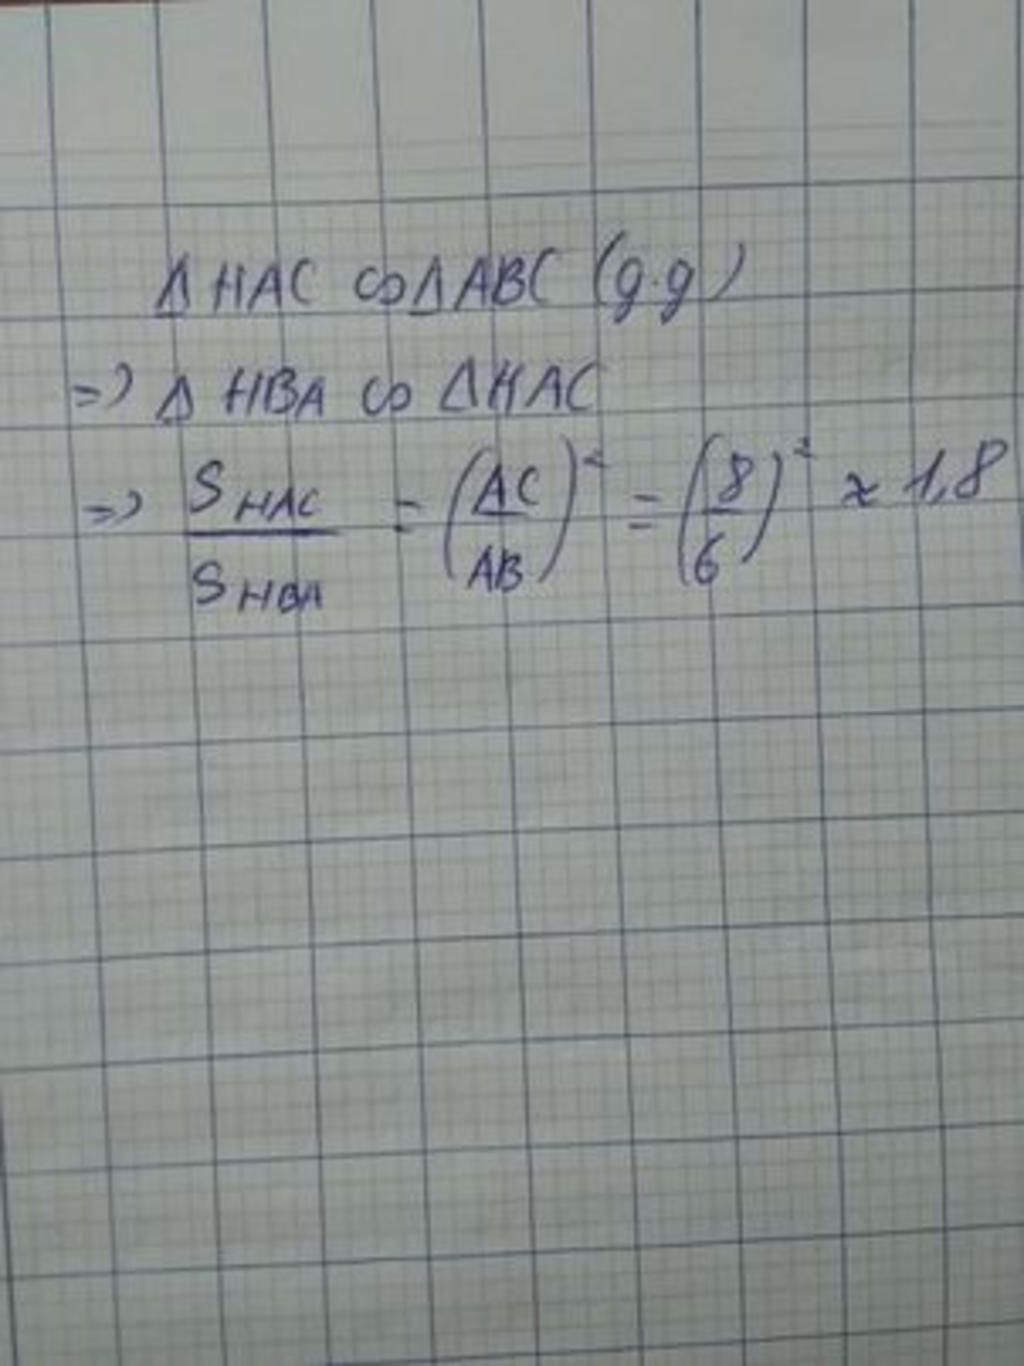 Δ HAC ∽ Δ ABC (g.g)
=> Δ HBA ∽ Δ HAC
=> S HAC / S HBA = (AC / AB)² = (8 / 6)² ≈ 1,8